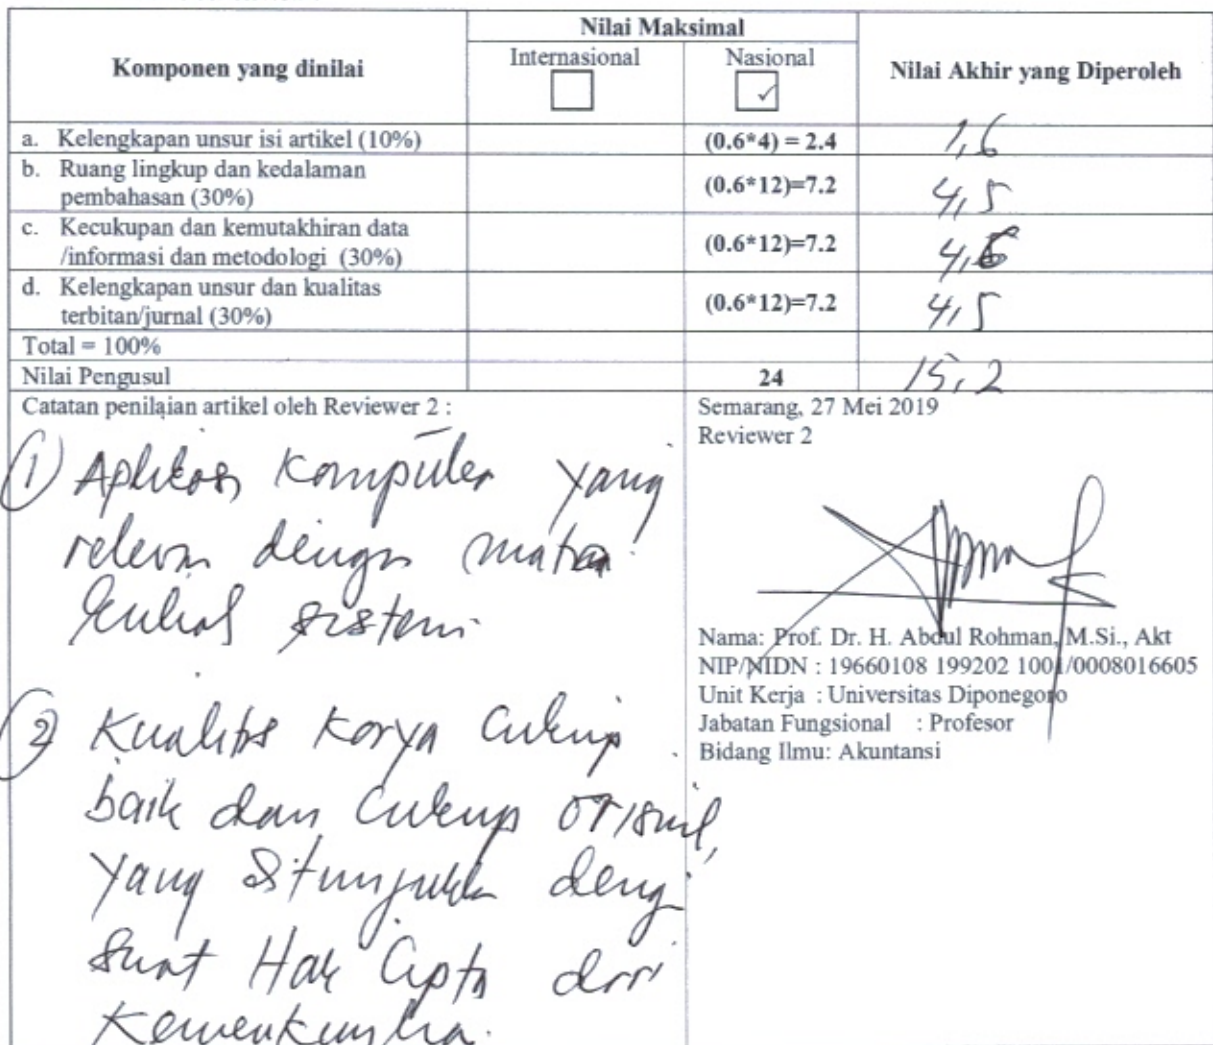 Komponen yang dinilai
Nilai Maksimal
Internasional
Nasional
✓
Nilai Akhir yang Diperoleh
a. Kelengkapan unsur isi artikel (10%) (0.6*4) = 2.4 1,6
b. Ruang lingkup dan kedalaman
pembahasan (30%) (0.6*12)=7.2 4,5
c. Kecukupan dan kemutakhiran data
/informasi dan metodologi (30%) (0.6*12)=7.2 4,6
d. Kelengkapan unsur dan kualitas
terbitan/jurnal (30%) (0.6*12)=7.2 4,5
Total = 100%
Nilai Pengusul 24 15,2
Catatan penilaian artikel oleh Reviewer 2 :
① Aplikasi Komputer yang
relevan dengan mata
kuliah sistem.
② Kualitas Karya Cukup
baik dan Cukup orisinil,
yang ditunjukkan dengan
surat Hak Cipta dari
Kemenkumha.
Semarang, 27 Mei 2019
Reviewer 2
Nama: Prof. Dr. H. Abdul Rohman, M.Si., Akt
NIP/NIDN : 19660108 199202 1001/0008016605
Unit Kerja : Universitas Diponegoro
Jabatan Fungsional : Profesor
Bidang Ilmu: Akuntansi